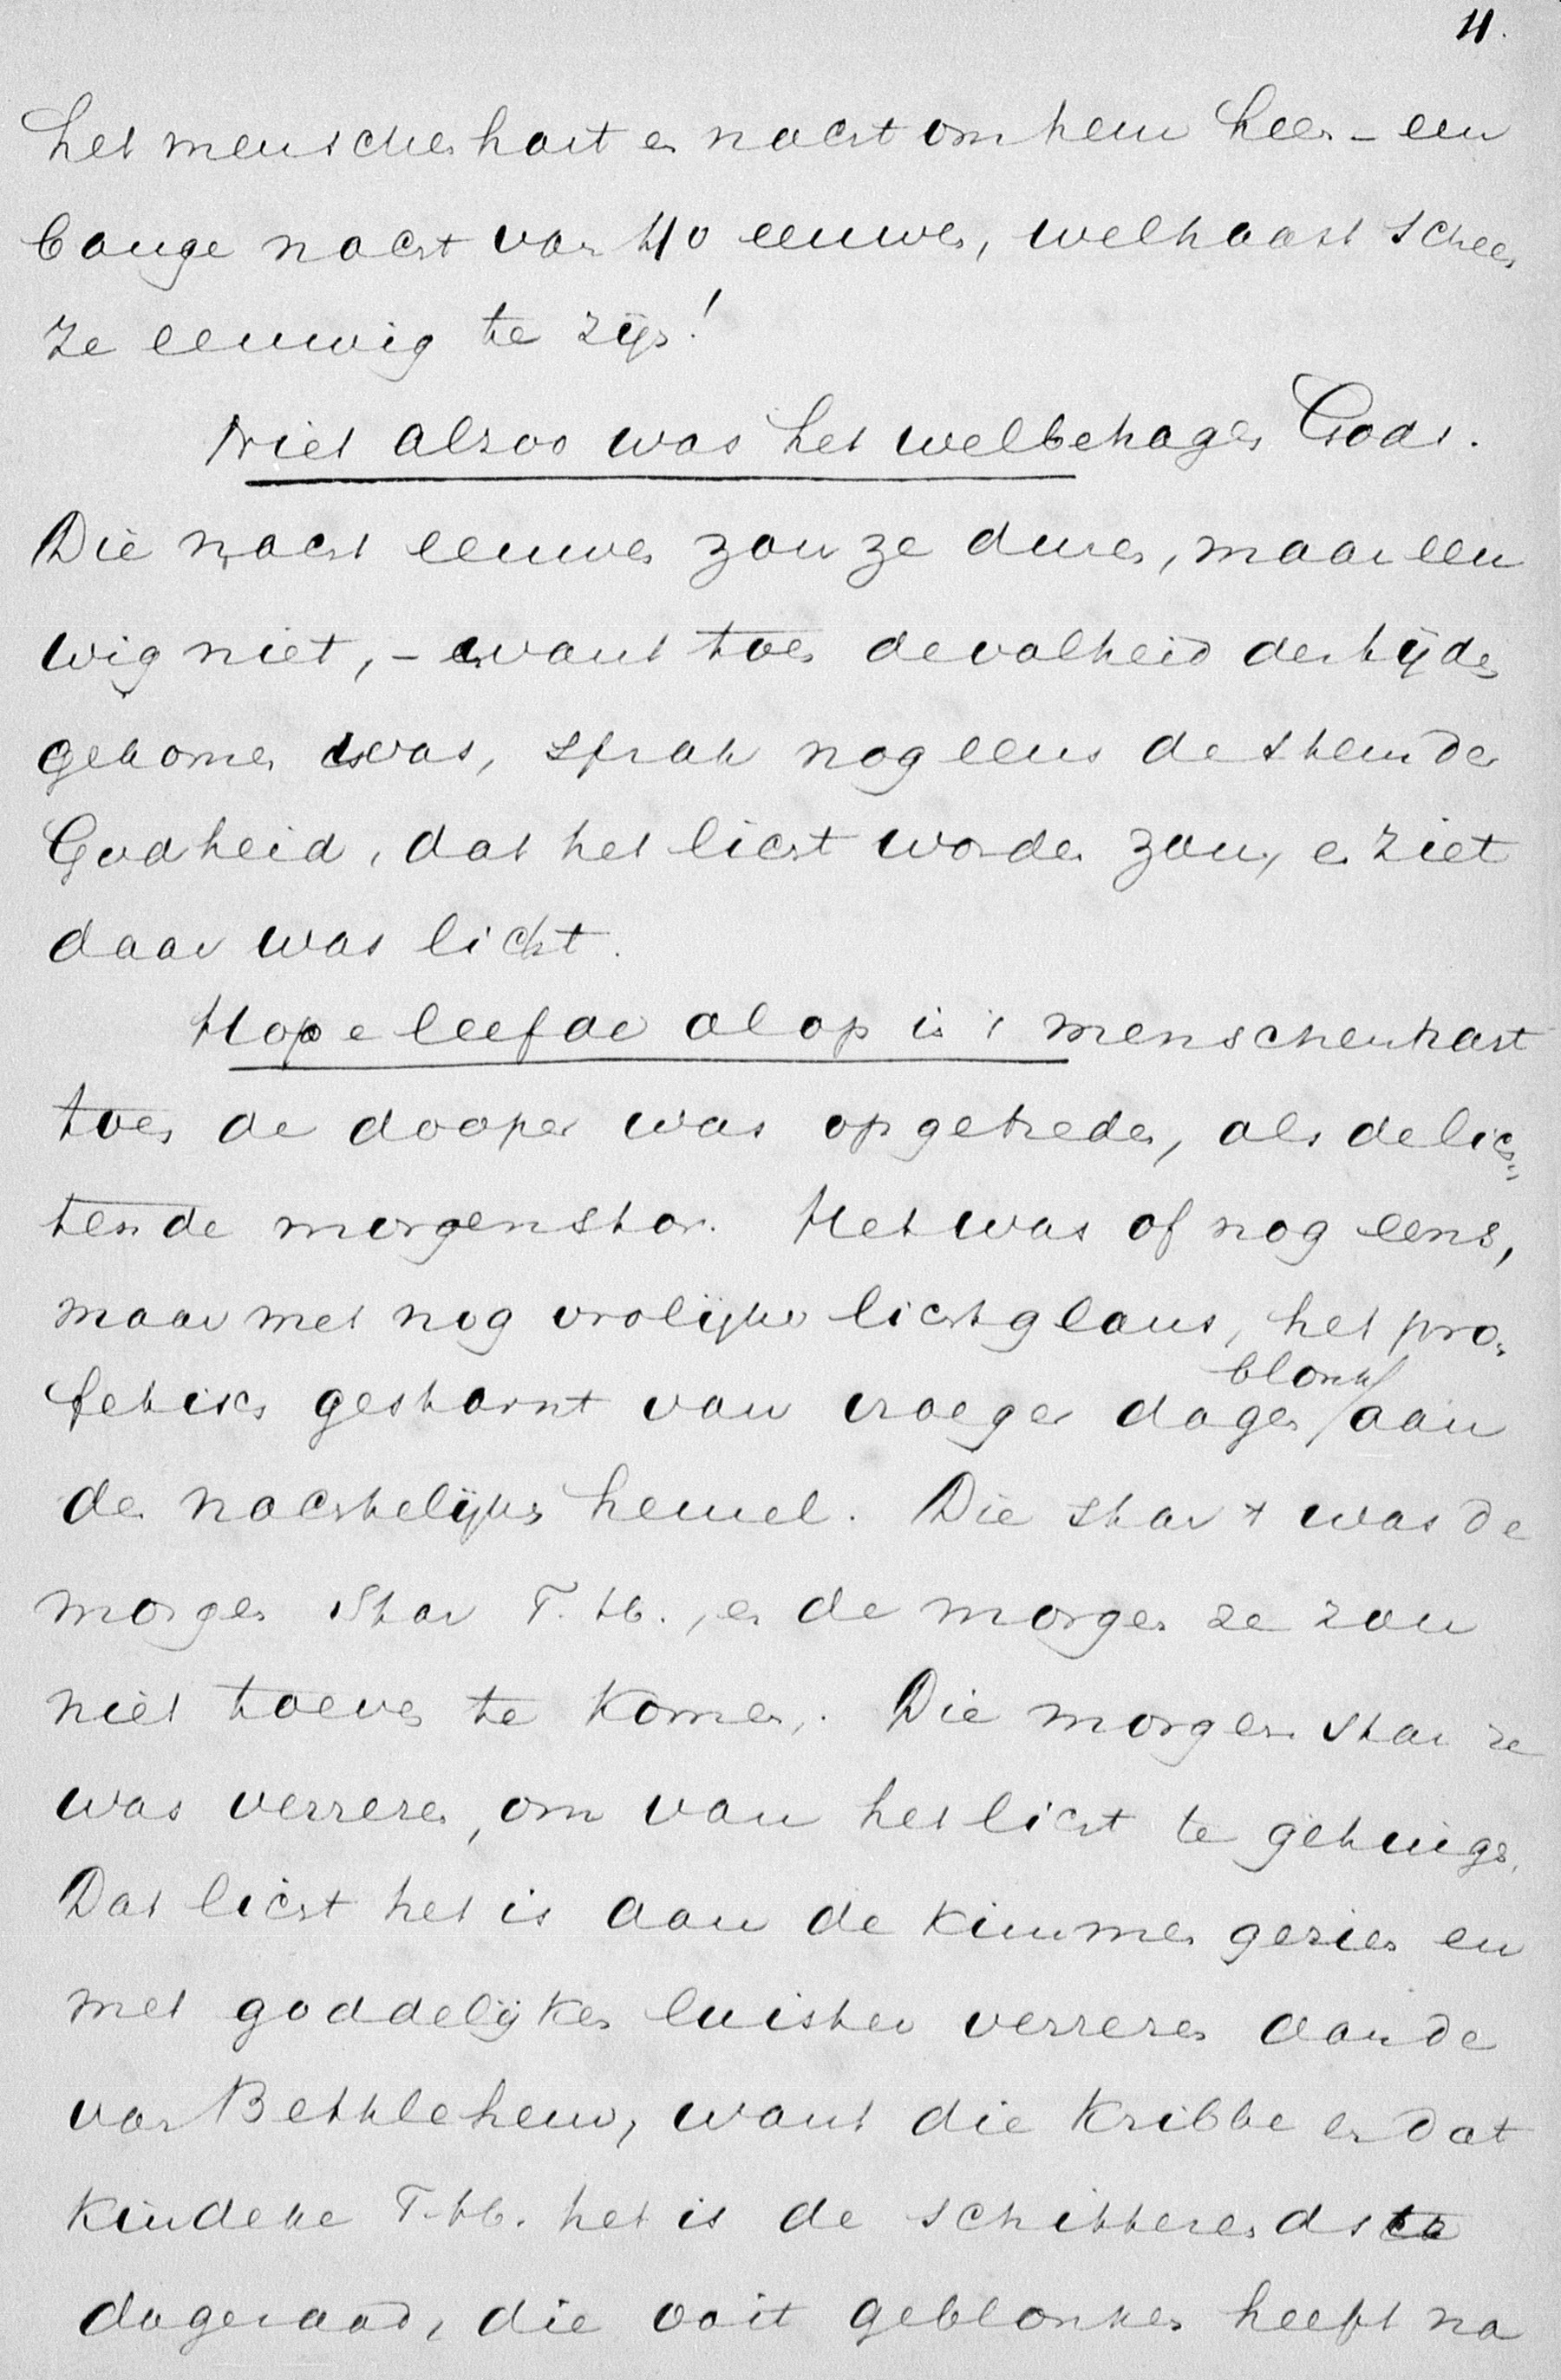 4.
het menschenhart en nacht om hem heen – een
bange nacht van 40 eeuwen, welhaast scheen
ze eeuwig te zijn!
Niet alzoo was het welbehagen Gods.
Die nacht eeuwen zou ze duren, maar eeu
wig niet, – want toen de volheid der tijden
gekomen was, sprak nog eens de stem der
Godheid, dat het licht worden zou, en ziet
daar was licht.
Hope leefde al op in 't menschenhart
toen de dooper was opgetreden, als de lich=
tende morgenstar. Het was of nog eens,
maar met nog vrolijker lichtglans, het pro=
fetisch gestarnt van vroeger dagen blonk aan
den nachtelijken hemel. Die star + was de
morgen star T. H., en de morgen ze zou
niet toeven te komen. Die morgen star ze
was verrezen, om van het licht te getuigen.
Dat licht het is aan de kimmen gezien en
met goddelijken luister verrezen aan de
van Bethlehem, want die kribbe en dat
kindeke T. H. het is de schitterendste
dageraad, die ooit geblonken heeft na